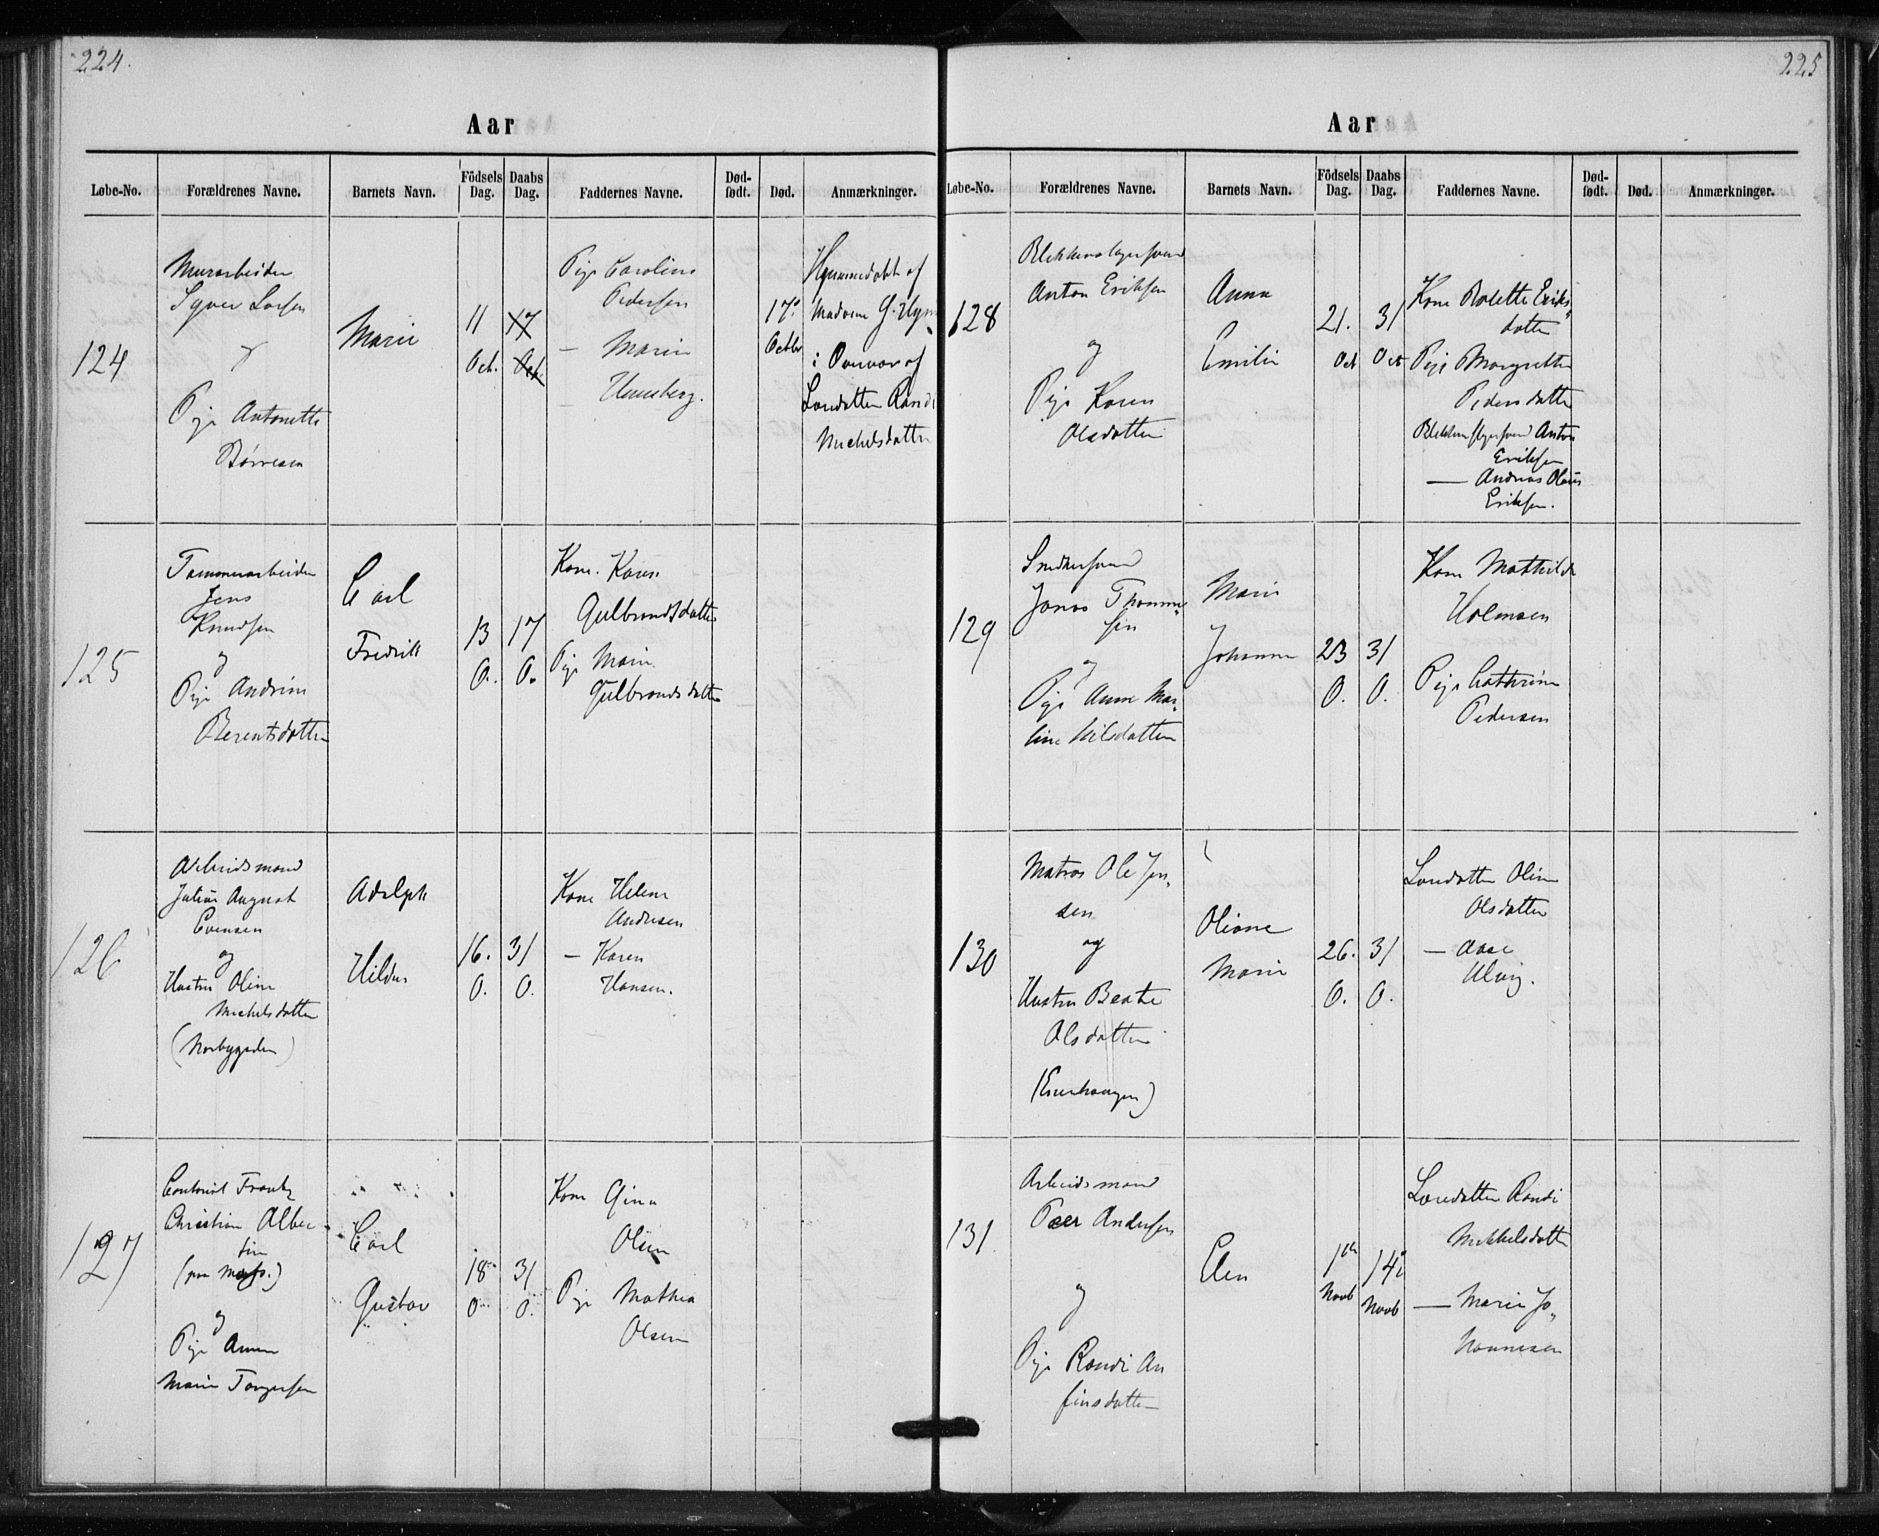 224.
Aar
Løbe-No. Forældrenes Navne. Barnets Navn. Födsels Dag. Daabs Dag. Faddernes Navne. Død-födt. Død. Anmærkninger.
124
Murarbeider
Syver Larsen
Pige Antonette
Børresen
Marie
11
Oct.
17
Oct
Pige Caroline
Pedersen
— Marie
Henneberg.
17
Octbr
Hjemmedøbt af
Madame G.
i Overvær af
Løsdatter Randi
Michelsdatter
125
Tømmerarbeider
Jens
Knudsen
og
Pige Andrine
Berentsdatter
Carl
Fredrik
13
O.
17
O.
Kone Karen
Gulbrandsdatter
Pige Marie
Gulbrandsdatter
126
Arbeidsmand
Julius August
Evensen
og
Hustru Oline
Michelsdatter
(Norbygaden)
Adolph
Hildus
16.
O.
31
O.
Kone Helene
Andresen
— Karen
Hansen.
127
Contorist Frantz
Christian Alber-
tin
og
Pige Anne
Marie Torgersen
Carl
Gustav
18
O
31
O.
Kone Gina
Olsen
Pige Mathea
Olsen
225
Aar
Løbe-No. Forældrenes Navne. Barnets Navn. Födsels Dag. Daabs Dag. Faddernes Navne. Død-födt. Død. Anmærkninger.
128
Blikkenslagersvend
Anton Eriksen
og
Pige Karen
Olsdatter
Anna
Emilie
21.
Oct
31
Oct
Kone Bolette Eriks-
datter
Pige Margrethe
Pedersdatter
Blikkenslagersvend Anton
Eriksen
— Andreas Olaus
Eriksen.
129
Snedkersvend
Jonas Thomme-
sen
og
Pige Anne Mar-
line Nilsdatter
Marie
Johanne
23
O.
31
O.
Kone Mathilde
Holmsen
Pige Cathrine
Pedersen
130
Matros Ole Jen-
sen
og
Hustru Beate
Olsdatter
(Enerhaugen)
Oliane
Marie
26.
O.
31
O.
Løsdatter Oline
Olsdatter
— Aase
131.
Arbeidsmand
Peer Andersen
og
Pige Randi An
finsdatter
Elen
1
Novb
14
Novb
Løsdatter Randi
Mikkelsdatter
— Marie Jo-
hannesen